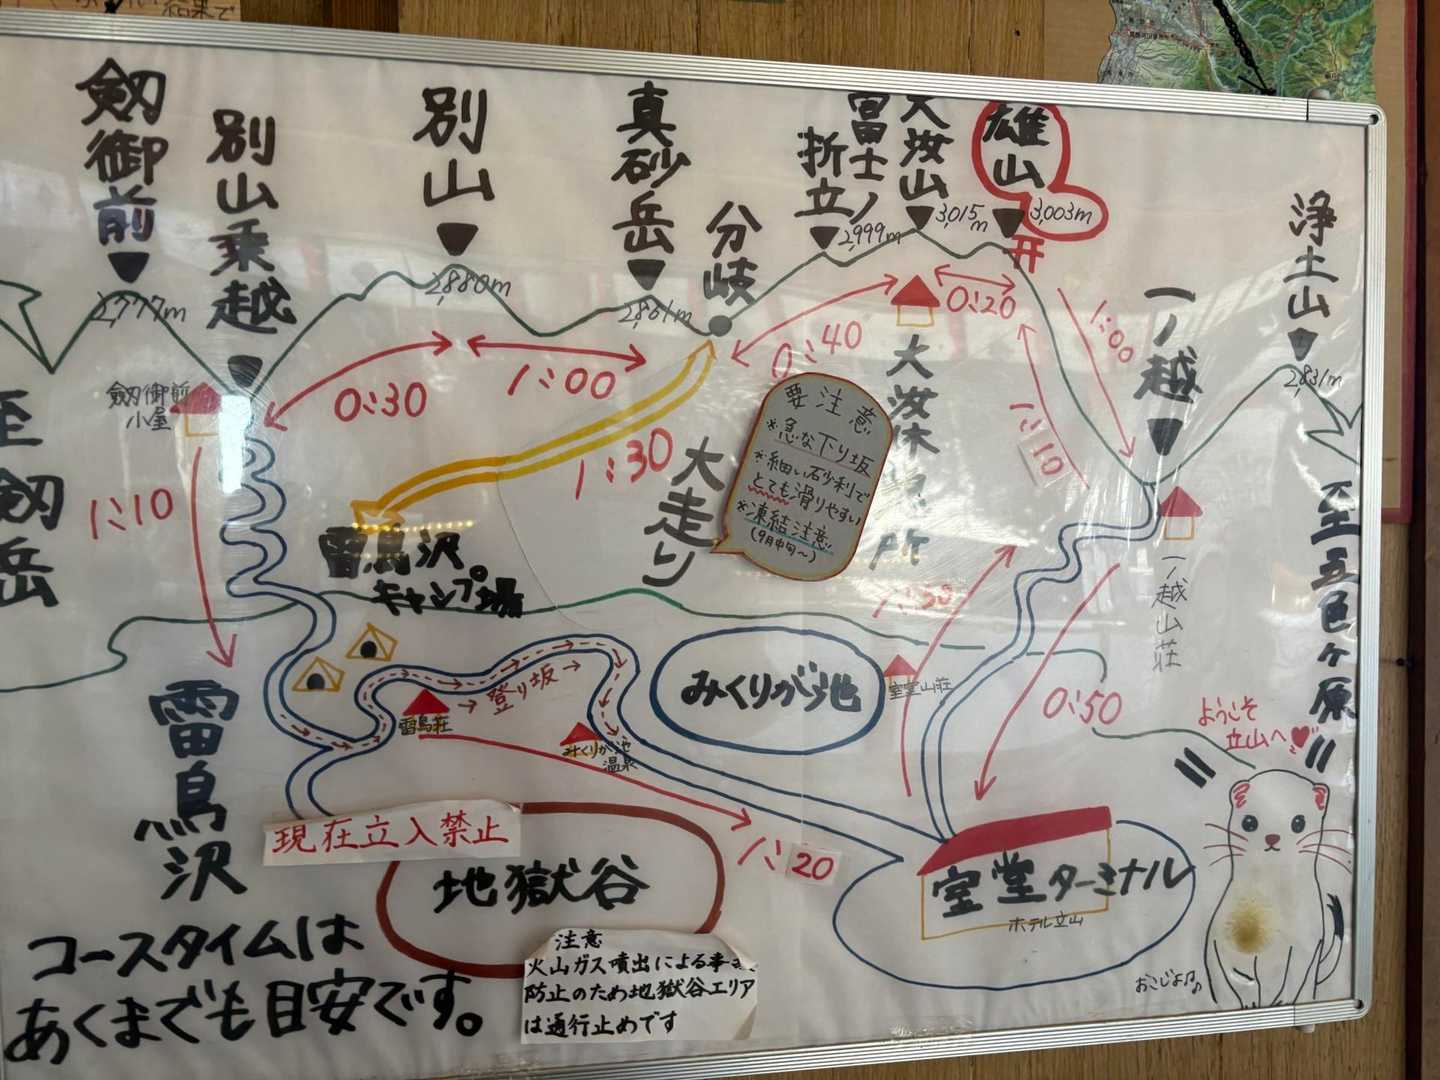 剱御前
2,777m
別山乗越
別山
2,880m
真砂岳
2,861m
分岐
富士ノ
折立
2,999m
大汝山
3,015m
雄山
3,003m
浄土山
2,831m
一ノ越
至剱岳
剱御前
小屋
0:30
1:00
0:40
0:20
1:00
1:10
1:10
1:30
大走り
要注意
※急な下り坂
※細い石砂利で
とても滑りやすい
※凍結注意
(9月中旬~)
大汝休
所
雷鳥沢
キャンプ場
一ノ越山荘
至五色ヶ原
みくりが池
室堂山荘
0:50
登り坂
雷鳥荘
みくりが池
温泉
雷鳥沢
ようこそ
立山へ
現在立入禁止
地獄谷
1:20
室堂ターミナル
ホテル立山
注意
火山ガス噴出による事
防止のため地獄谷エリア
は通行止めです
おこじょ
コースタイムは
あくまでも目安です。